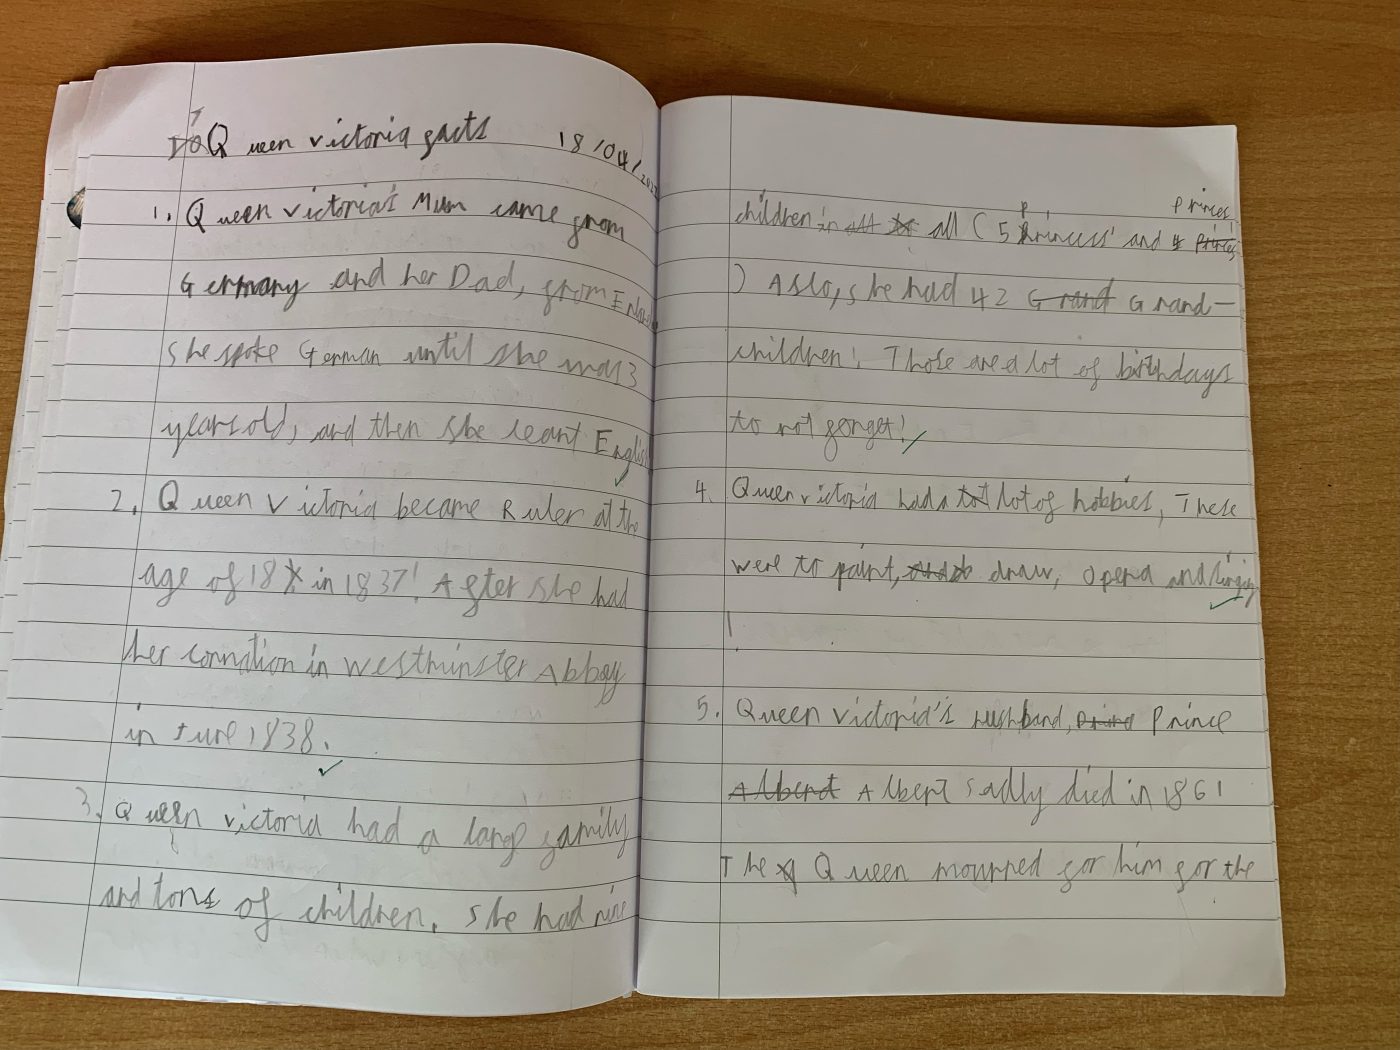 Queen victoria facts 18/04/202
1. Queen victoria's Mum came from
Germany and her Dad, from
she spoke German until she was 3
years old, and then she leant English
2. Queen Victoria became Ruler at the
age of 18 in 1837! After she had
her connation in Westminster Abbey
in June 1838.
3. Queen victoria had a large family
and tons of children. she had nine
princes
children in all (5 princess' and 4
) Aslo, she had 42 Grand-
children! Those are a lot of birthdays
to not forget!
4. Queen victoria had a lot of hobbies, These
were to paint, draw, opera and singing
!
5. Queen victoria's husband, Prince
Albert sadly died in 1861
The Queen mourned for him for the